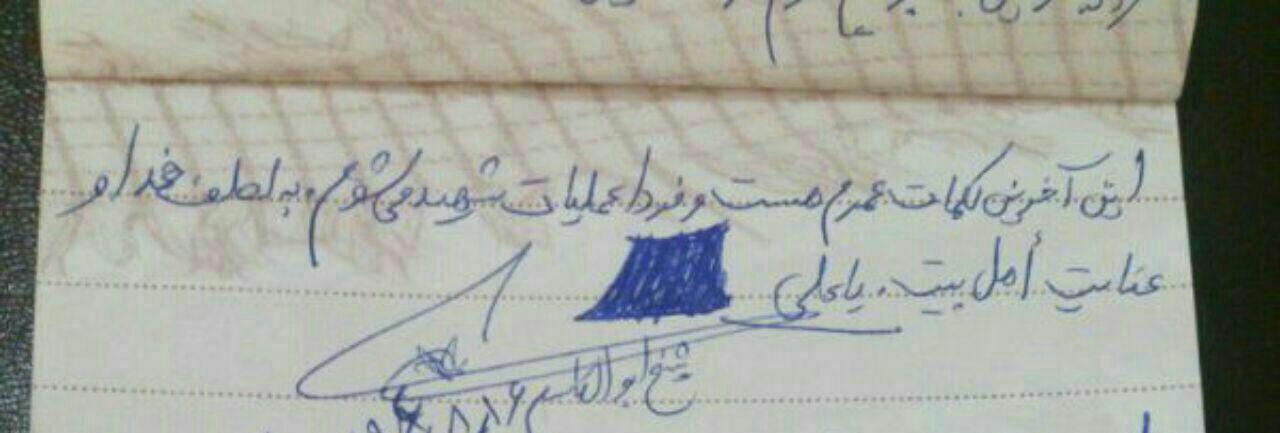 این آخرین کلمات عمرم هست و فردا عملیات شهید می‌شوم، به لطف خدا و
عنایت أهل بیت. یا علی
شیخ ابوالقاسم